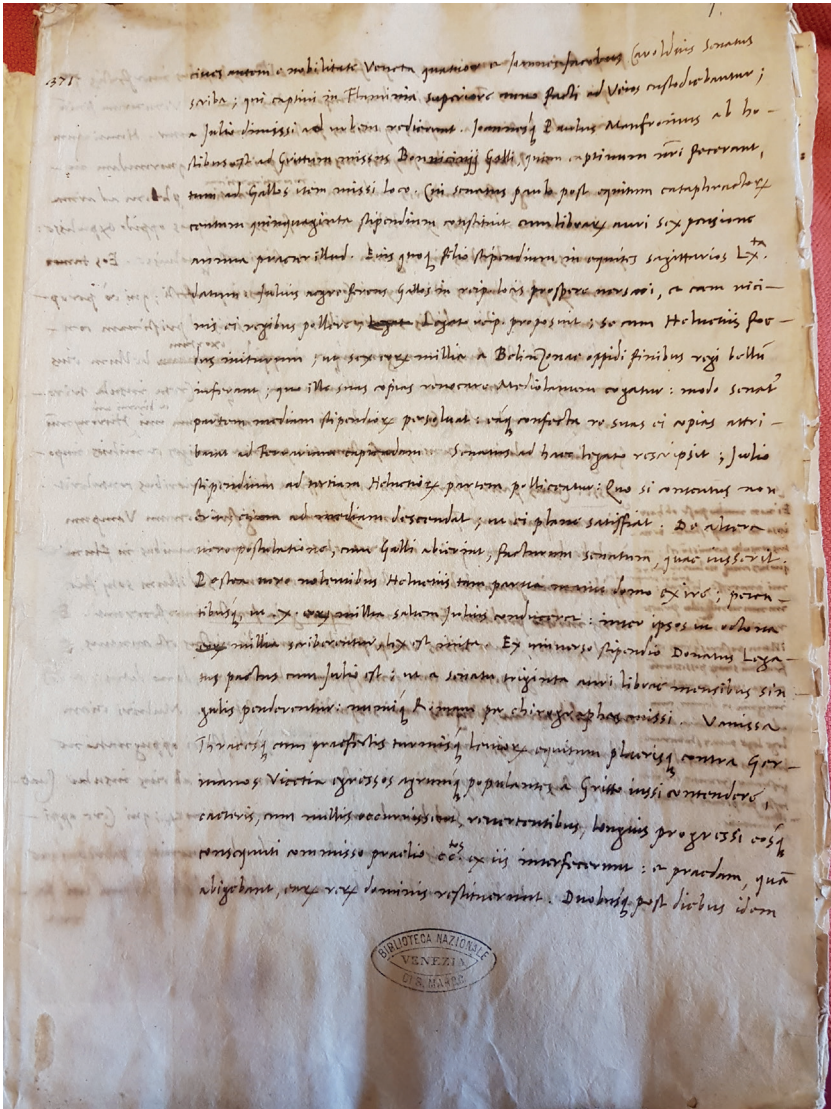 1.
371
cives autem e nobilitate Veneta quatuor et Joannesjacobus Caroldius senatus
scriba; qui captivi in Flaminia superiore anno facti ad Veios custodiebantur;
a Julio dimissi ad urbem redierunt. Joannesq́ Paulus Manfronius ab ho-
stibus est ad Grittum missus Bonnicinij Galli, quem captivum nr̃i fecerant,
tum ad Gallos item missi loco. Cui senatus paulo post equitum cataphractorꝝ
centum quinquaginta stipendium constituit cum librarꝝ auri sex pensione
annua praeter illud. Eius quoq́ filio stipendium in equites sagittarios Lx.ta
datum. Julius aegre ferens Gallos in reip. locis prospere versari, et cum vici-
nis ei regibus pollere; Legato reip. proposuit; se cum Helvetiis foe-
dus initurum, ut sex eorꝝ millia a Belinzonae oppidi finibus regi bellũ
inferant, quo ille suas copias revocare Mediolanum cogatur: modo senat'
partem mediam stipendiorꝝ persoluat: eaq́ confecta re suas ei copias attri-
buat ad Ferrariam capiendam. Senatus ad haec legato rescripsit; Julio
stipendium ad tertiam Helvetiorꝝ partem polliceatur: Quo si contentus non
erit; etiam ad mediam descendat; ut ei plane satisfiat. De altera
vero postulatione, cum Galli abierint, facturum senatum, quae iusserit.
Postea vero nolentibus Helvetiis tam parva manu domo exire; peten-
tibusq́, ut ex. eorꝝ millia saltem Julius conduceret: inter ipsos ut octona
eorꝝ millia scriberentur, lex est inita. Ex universo stipendio Donatus Lega-
tus pactus cum Julio est: ut a senatu triginta auri librae mensibus sin-
gulis penderentur: nummiq́ Romam per chirographos missi. Vanissa
Thracesq́ cum praefectis turmisq́ leviorꝝ equitum plaerisq́ contra Ger-
manos Vicetia egressos agrumq́ populantes a Gritto iussi contendere,
caeteris, cum nullis occurrissent, revertentibus, longius progressi eosq́
consequuti commisso praelio cc.tos ex iis interfecerunt: et praedam, quã
abigebant, earꝝ rerꝝ dominis restituerunt. Duobusq́ post diebus idem
BIBLIOTECA NAZIONALE
VENEZIA
DI S. MARCO